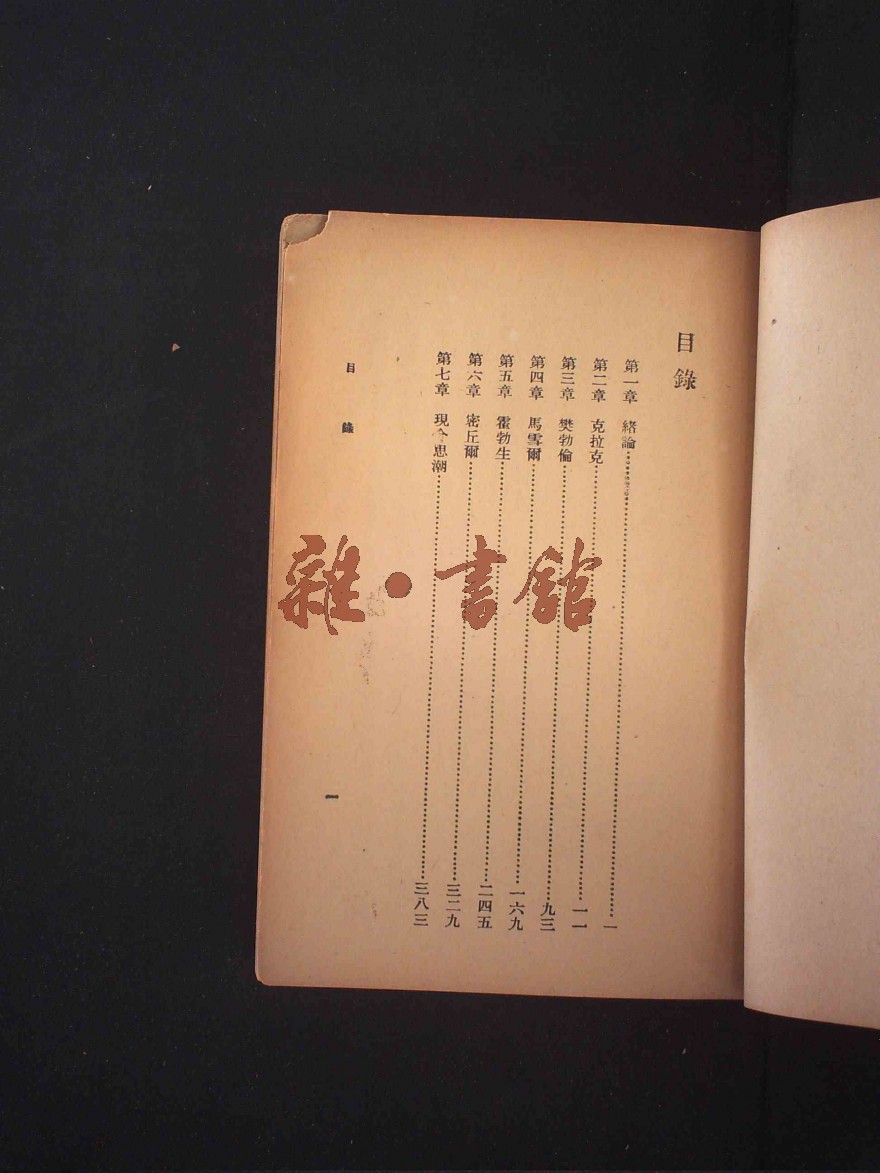 目錄
第一章 緒論 一
第二章 克拉克 一一
第三章 樊勃倫 九三
第四章 馬雪爾 一六九
第五章 霍勃生 二四五
第六章 密丘爾 三二九
第七章 現今思潮 三八三
目錄
一
雜·書館